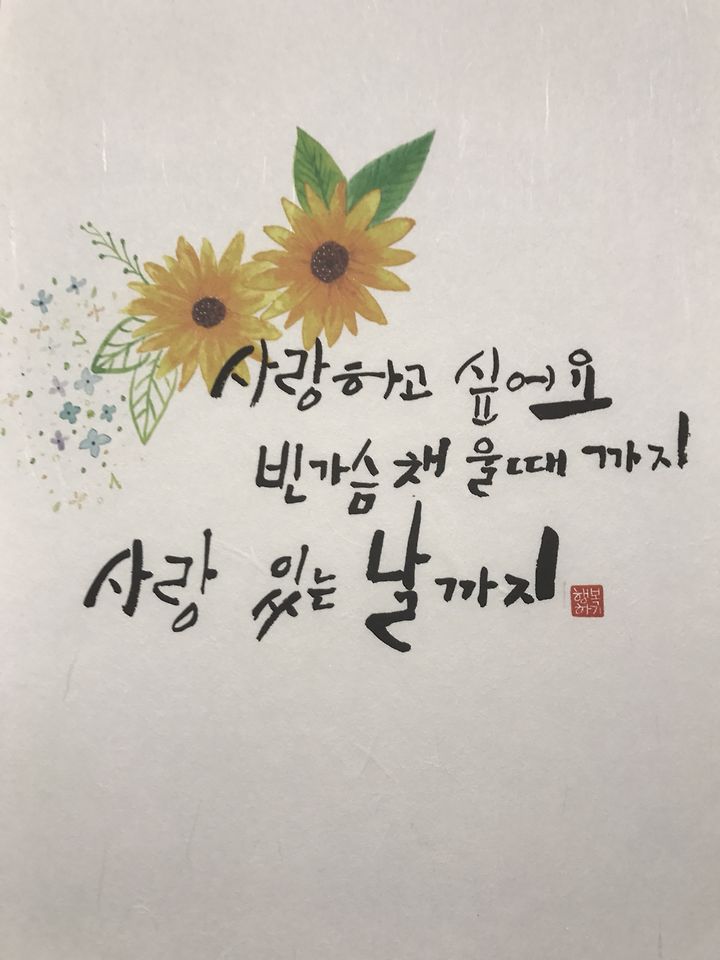 사랑하고 싶어요
빈가슴 채울때 까지
사랑 있는 날까지
행복
하기